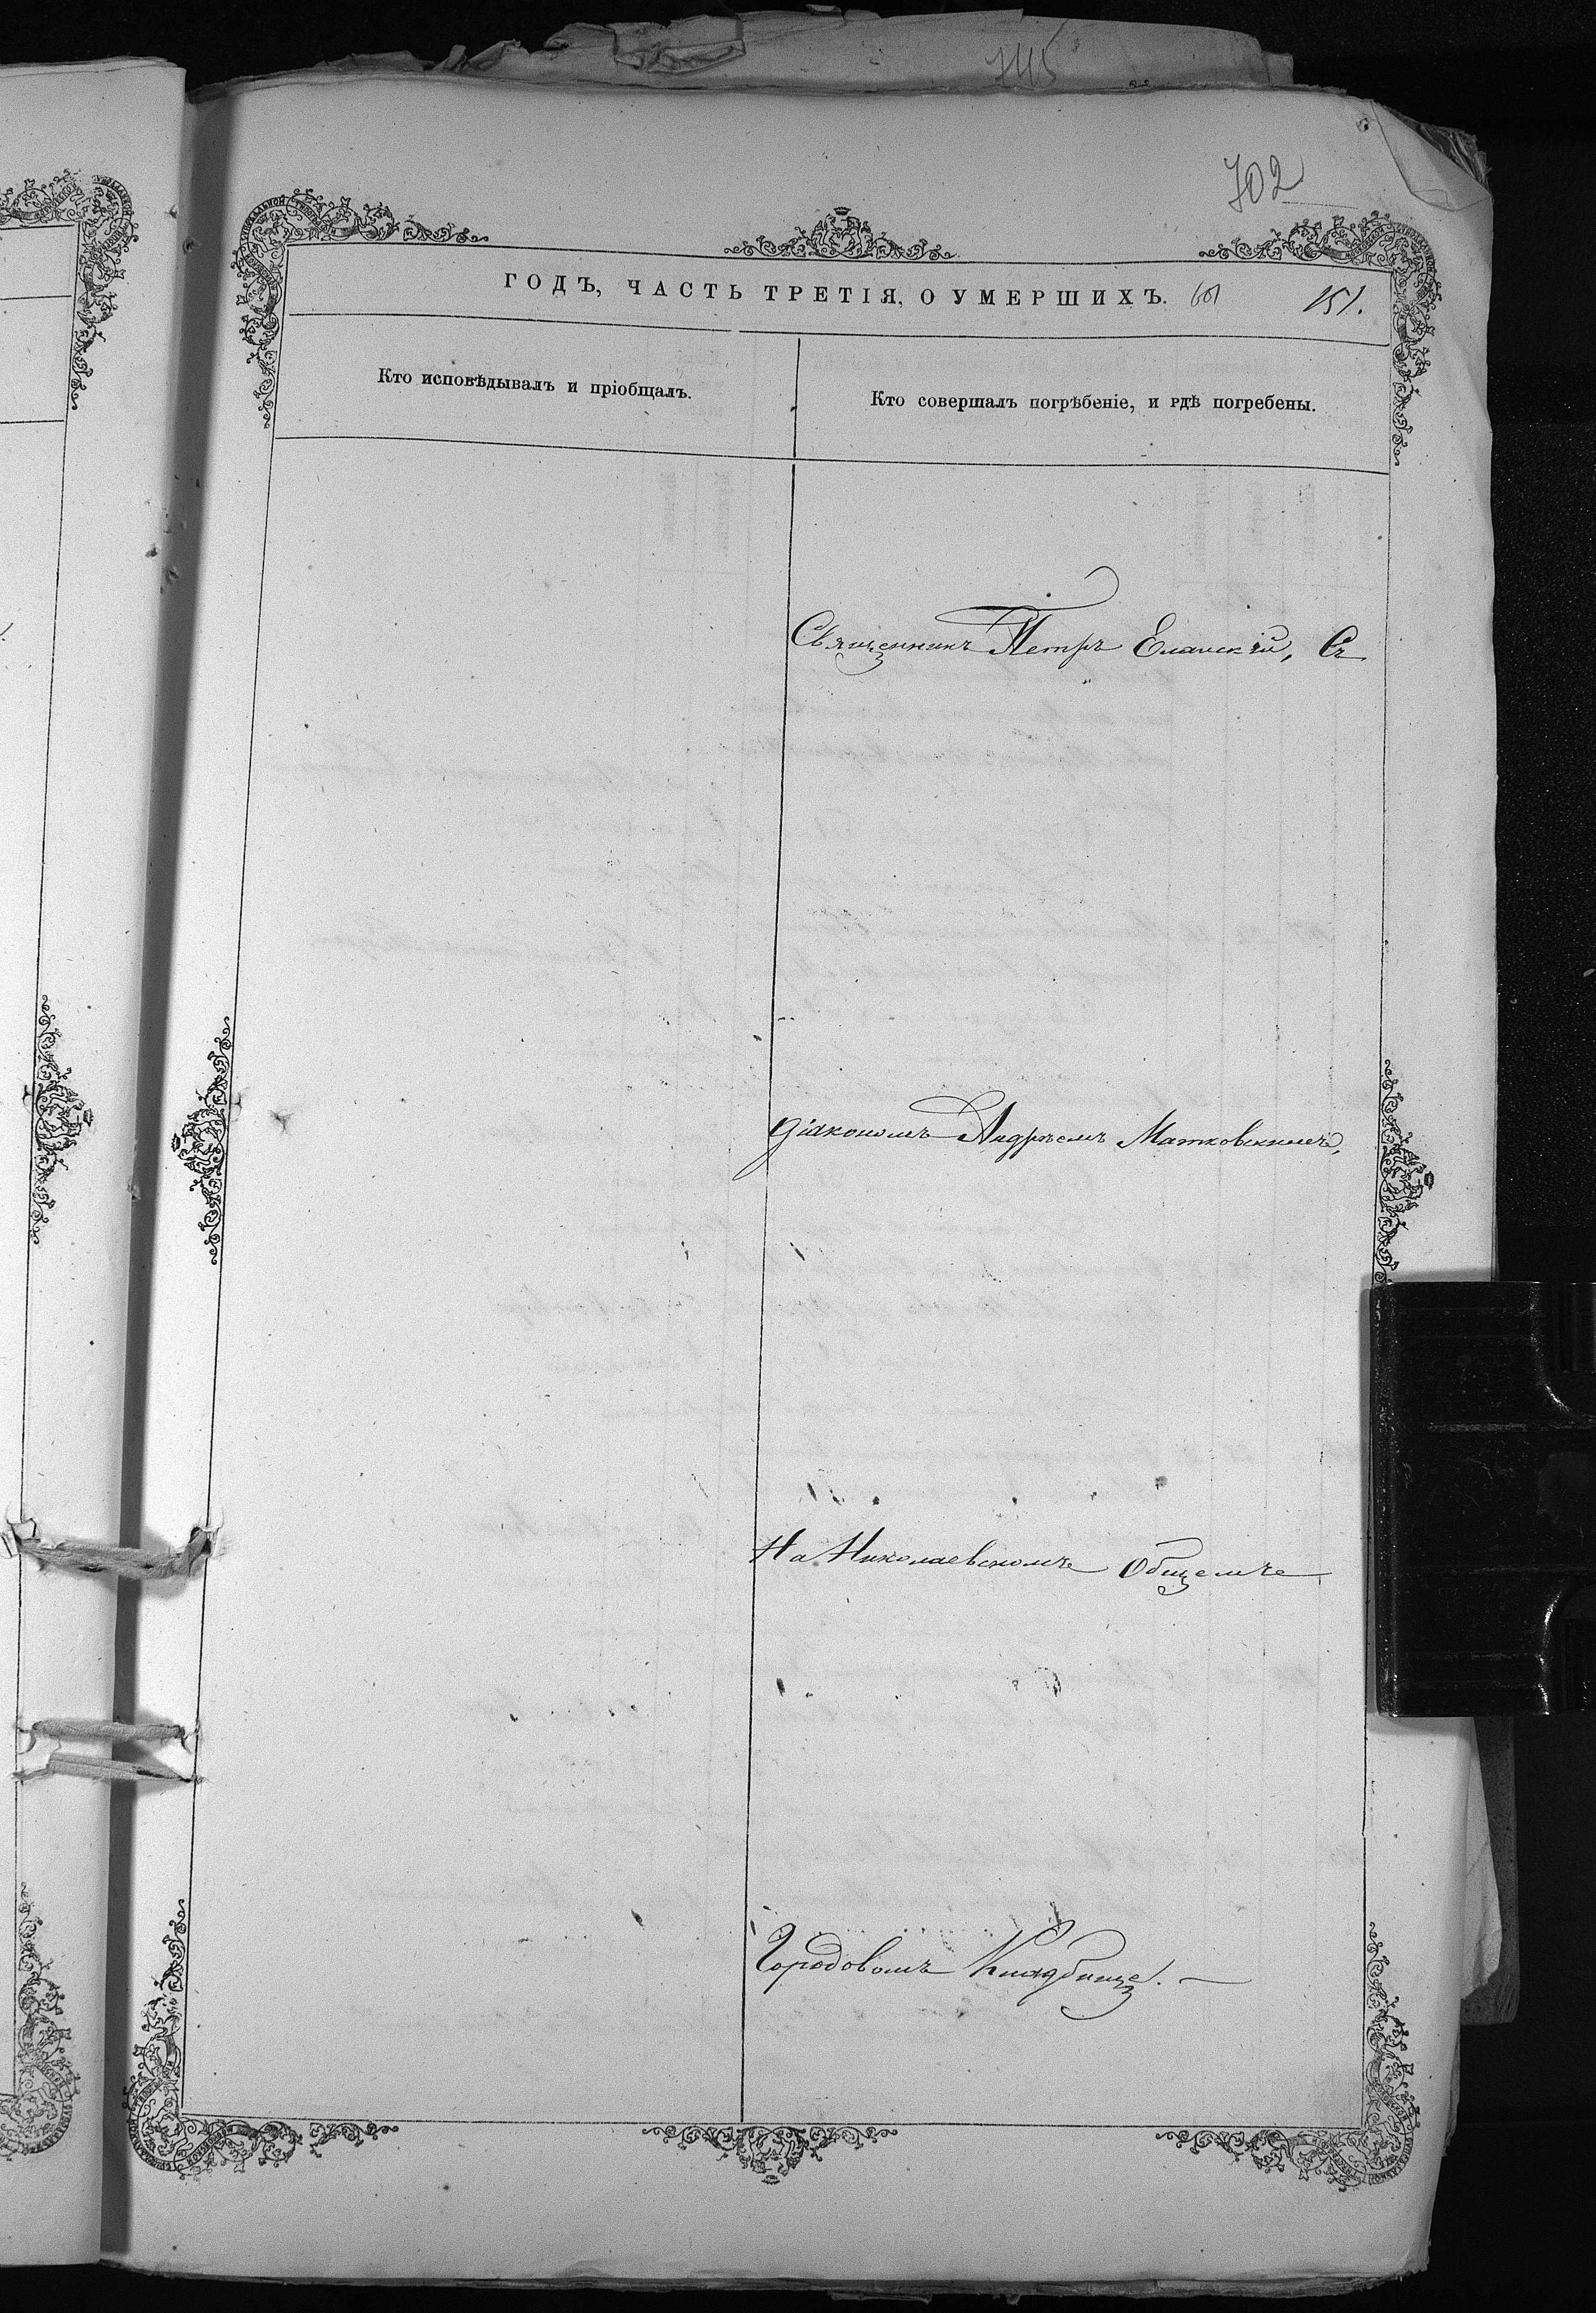 702
ГОДЪ, ЧАСТЬ ТРЕТІЯ, О УМЕРШИХЪ.
151.
Кто исповѣдывалъ и пріобщалъ.
Кто совершалъ погрѣбеніе, и гдѣ погребены.
Священникъ Петръ Еланскій, Съ
Діакономъ Андреемъ Матковскимъ,
На Николаевскомъ Общемъ
Городовомъ Кладбище. —